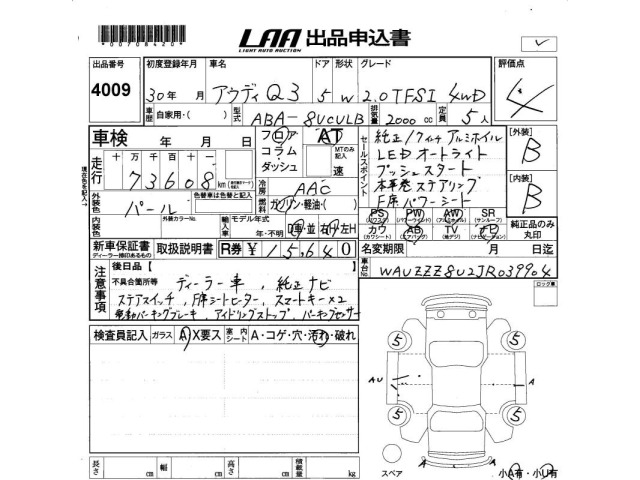 00708420
LAA 出品申込書
LIGHT AUTO AUCTION
出品番号 初度登録年月 車名 ドア 形状 グレード 評価点
4009 30年 月 アウディ Q3 5 W 2.0 TFSI 4WD 4
車歴 自家用・( ) 型式 ABA-8UCULB 排気量 2000 cc 定員 5人
車検 年 月 日 フロア コラム ダッシュ AT MTのみ記入 速
セールスポイント 純正17インチ アルミホイル [外装] B
LEDオートライト
プッシュスタート
本革巻ステアリング [内装] B
F席パワーシート
走行 十万千百十一 73608 km
現在色を記入→
冷房 AAC
外装色 パール 色替車は色替と記入 燃料 ガソリン・軽油・( )
内装色 外装カラーNo. 輸入車 モデル年式 年・不明 D車・並 右H・左H
PS PW AW SR 純正品のみ丸印
(パワステ) (パワーウィンド) (アルミホイル) (サンルーフ)
カワ AB TV ナビ
(カワシート) (エアバッグ) (地デジ) (ナビゲーション)
新車保証書 取扱説明書 R券 ¥ 15,640 名変期限 月 日迄
ディーラー捺印あるもの
車台No. WAUZZZ8U2JR039904
注意事項 後日品【 】
不具合箇所等 ディーラー車、純正ナビ
ステアスイッチ、F席シートヒーター、スマートキー×2
電動パーキングブレーキ、アイドリングストップ、パーキングセンサー
ロック車
検査員記入 ガラス A X要ス 室内シート A・コゲ・穴・汚れ・破れ
5 5
AU A
5 5
A A
スペア 小A有・小U有
長さ cm 幅 cm 高さ cm 積載量 kg